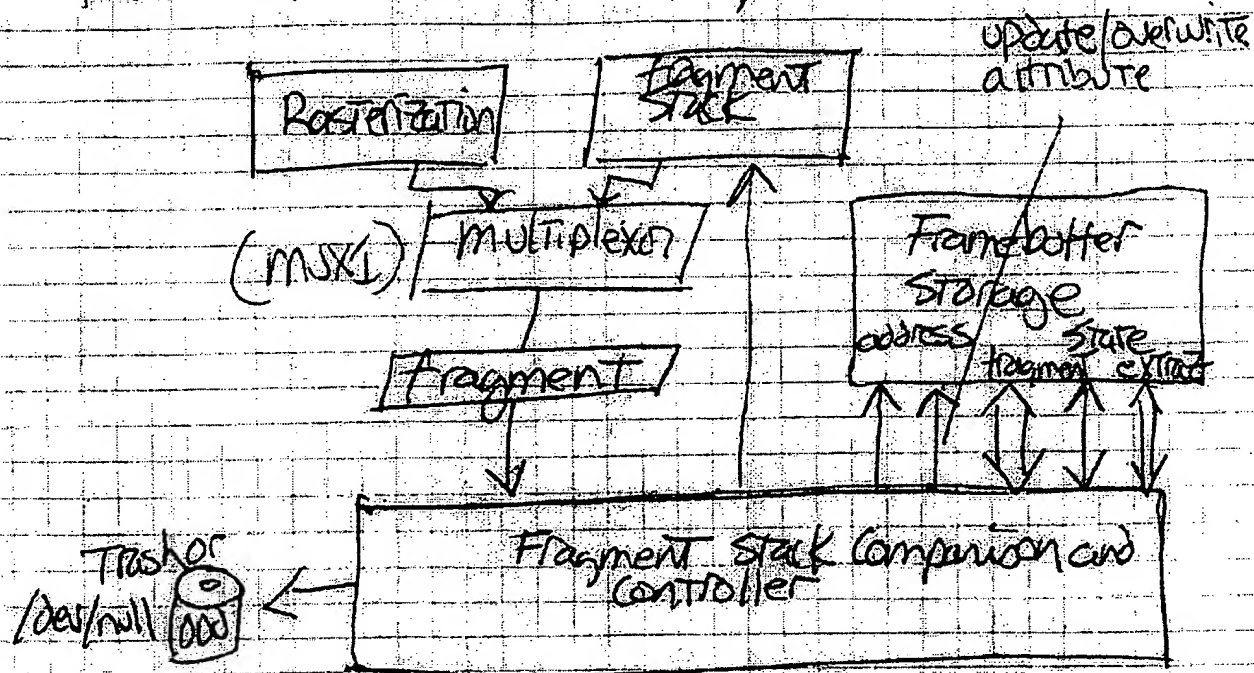 update/overwrite
attribute
Rasterization
fragment
stack
(mux1)
multiplexn
Framebuffer
Storage
address
fragment
state
extract
fragment
Fragment Stack Comparison and
controller
Trash or
/dev/null